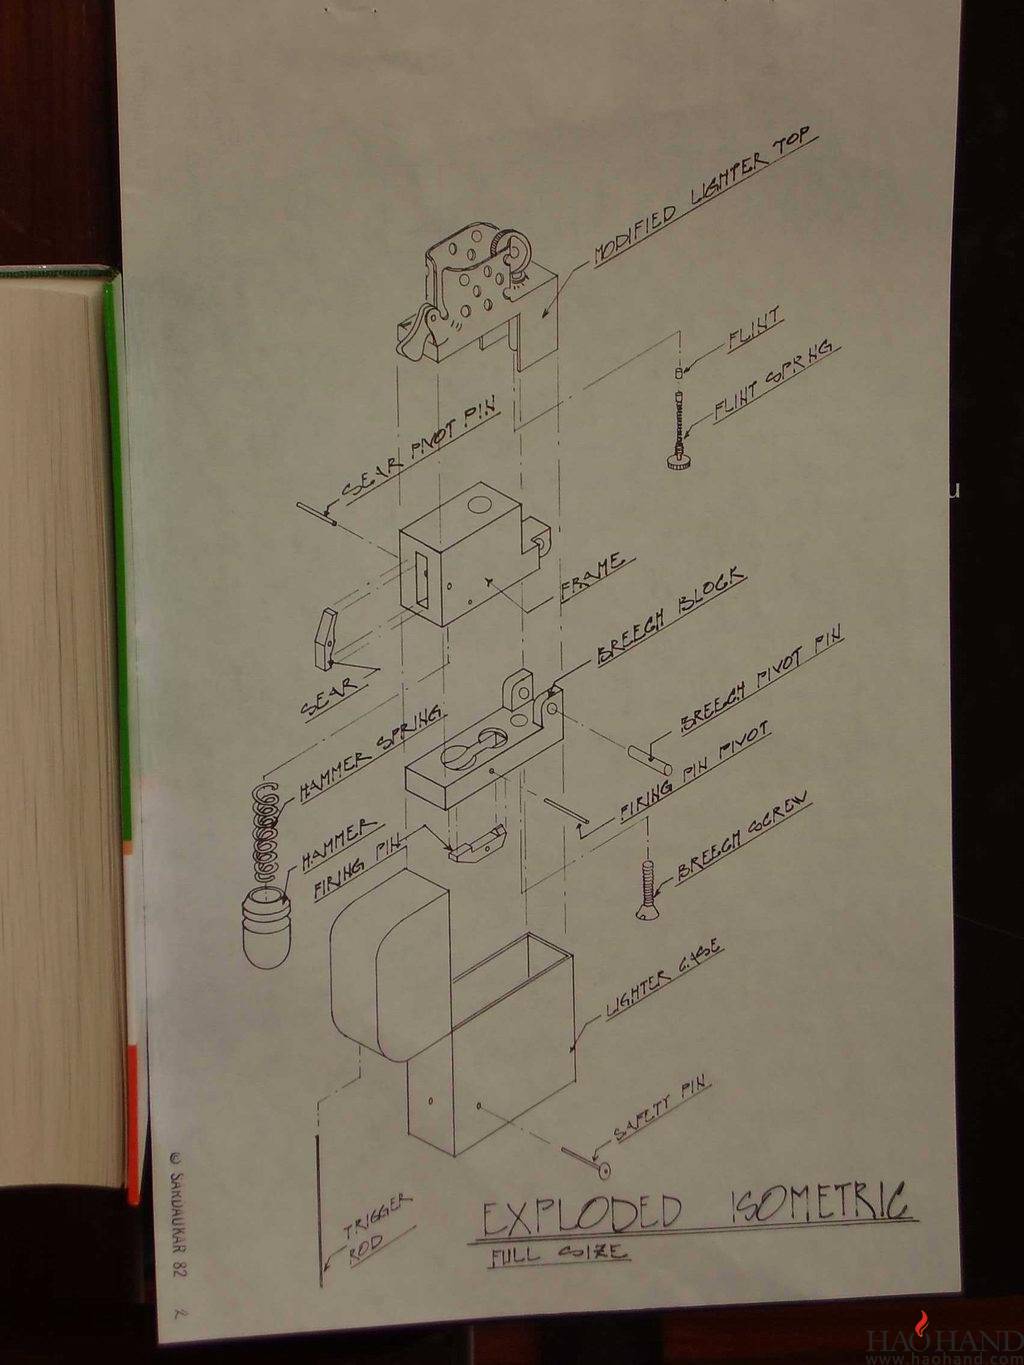 MODIFIED LIGHTER TOP
FLINT
FLINT SPRNG
SEAR PIVOT PIN
FRAME
BREECH BLOCK
SEAR
BREECH PIVOT PIN
HAMMER SPRING
FIRING PIN PIVOT
HAMMER
FIRING PIN
BREECH SCREW
LIGHTER CASE
SAFETY PIN
TRIGGER
ROD
EXPLODED ISOMETRIC
FULL SIZE
© SARDAUKAR 82
2
u
HAOHAND
www.haohand.com